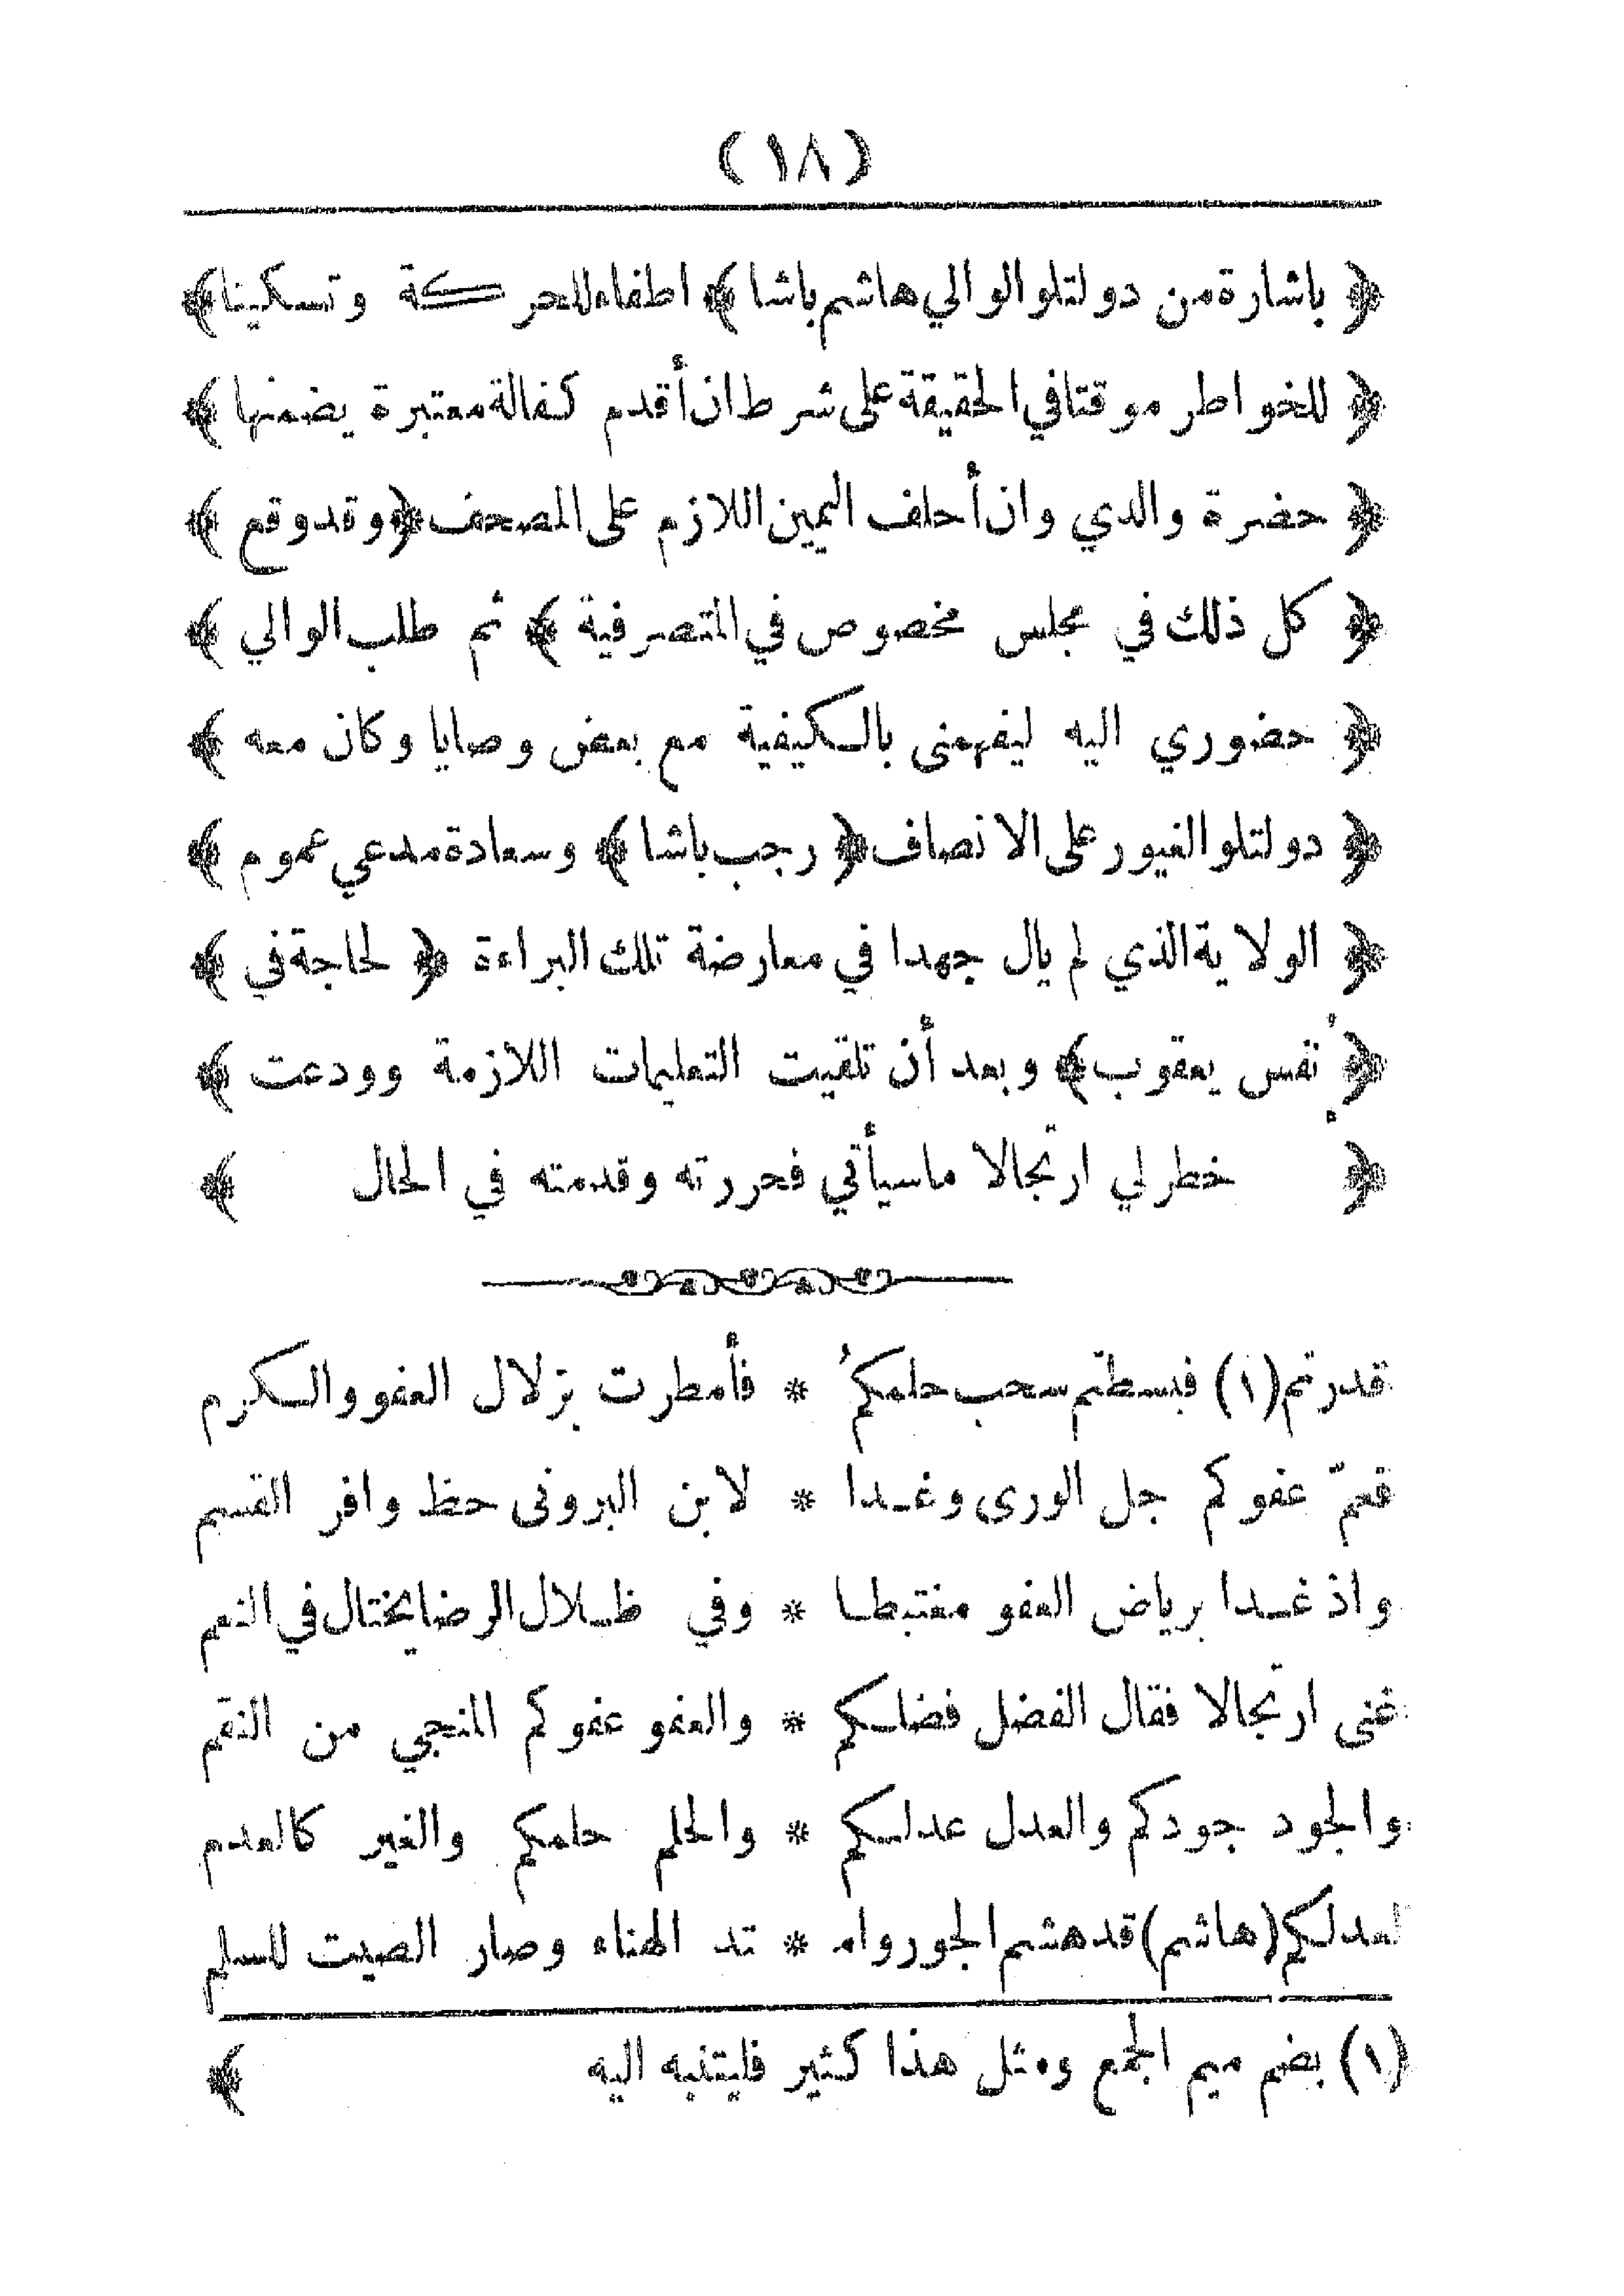 (١٨)
﴿ باشارة من دولتلو الوالي هاشم باشا ﴾ اطفاء للحركة وتسكينا ﴾
﴿ للخواطر موقتا في الحقيقة على شرط ان أقدم كفالة معتبرة يضمنها ﴾
﴿ حضرة والدي وان أحلف اليمين اللازم على المصحف ﴿ وقد وقع ﴾
﴿ كل ذلك في مجلس مخصوص في المتصرفية ﴾ ثم طلب الوالي ﴾
﴿ حضوري اليه ليفهمنى بالكيفية مع بعض وصايا وكان معه ﴾
﴿ دولتلو الغيور على الانصاف ﴿ رجب باشا ﴾ وسعادة مدعي عموم ﴾
﴿ الولاية الذي لم يال جهدا في معارضة تلك البراءة ﴿ لحاجة في ﴾
﴿ نفس يعقوب ﴾ وبعد أن تلقيت التعليمات اللازمة وودعت ﴾
﴿ خطر لي ارتجالا ما سيأتي فحررته وقدمته في الحال ﴾
قدرتم (١) فبسطتم سحب حلمكمُ * فأمطرت بزلال العفو والكرم
فعمّ عفوكم جل الورى وغدا * لابن البرونى حظ وافر القسم
واذ غدا برياض العفو مغتبطا * وفي ظلال الرضا يختال في النعم
غنى ارتجالا فقال الفضل فضلكم * والعفو عفوكم المنجي من النقم
والجود جودكم والعدل عدلكم * والحلم حلمكم والغير كالعدم
لعدلكم (هاشم) قد هشم الجور وام * تد الهناء وصار الصيت للسلم
(١) بضم ميم الجمع ومثل هذا كثير فليتنبه اليه ﴾